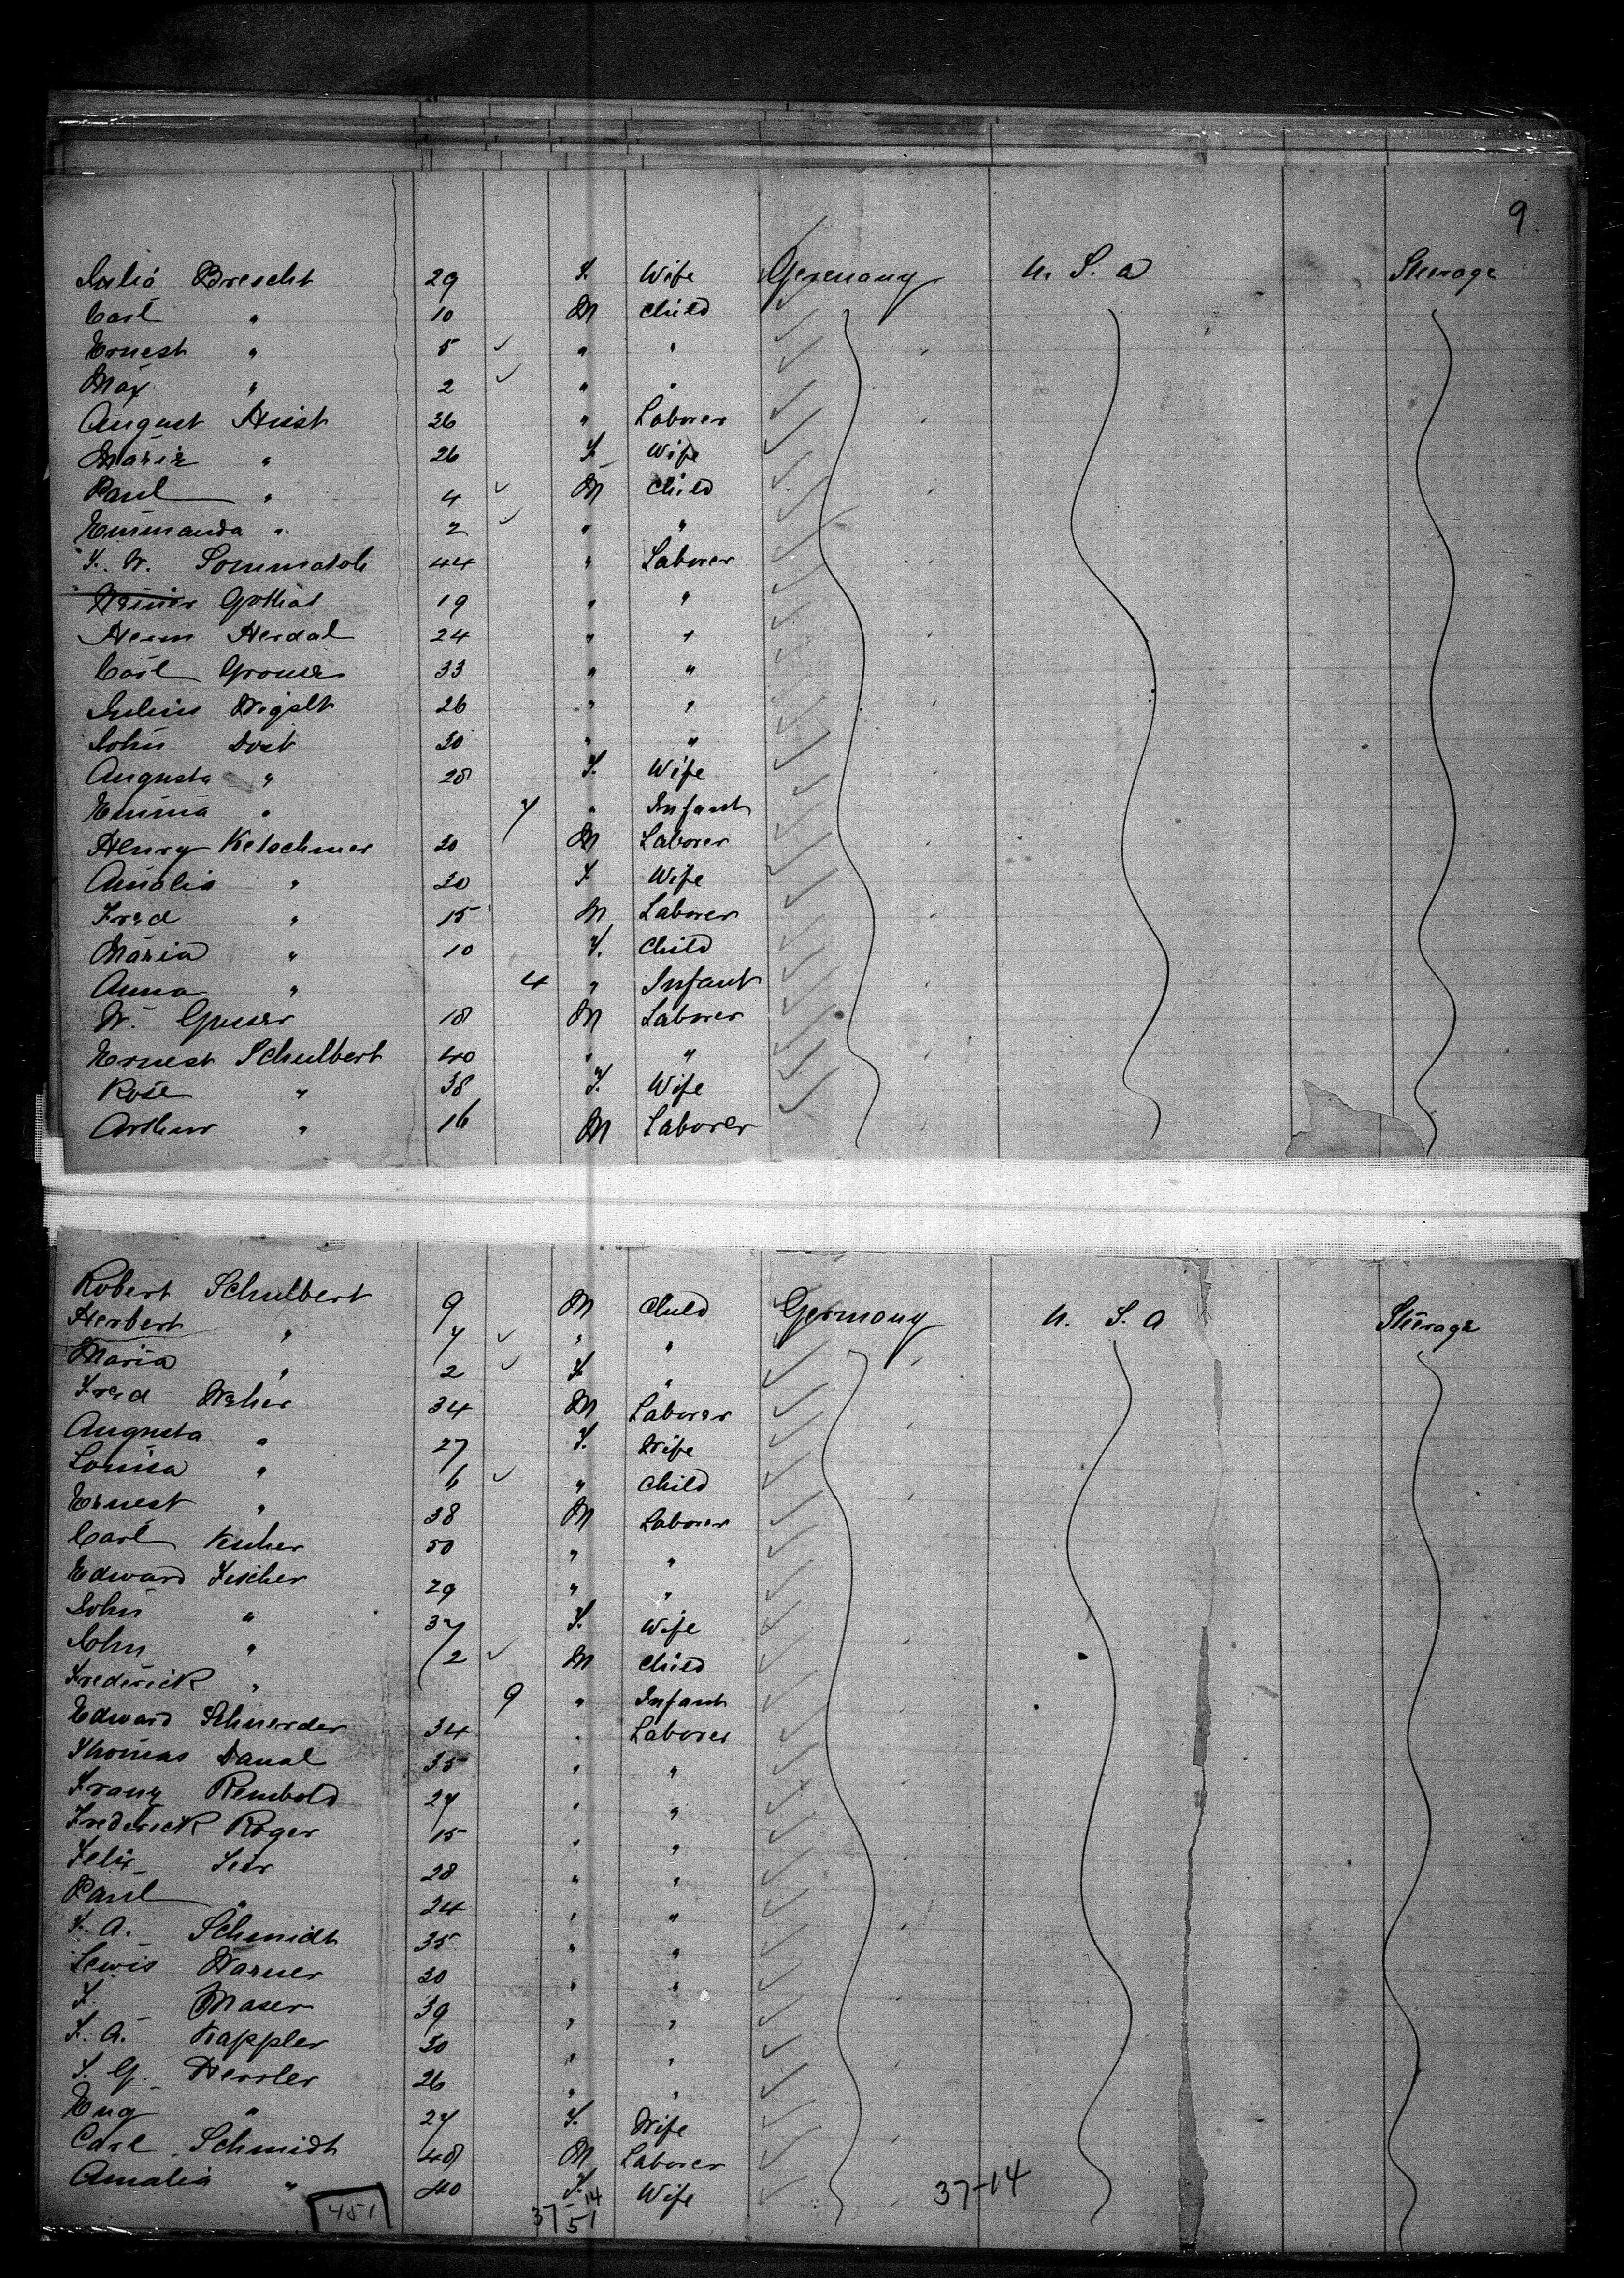 9.
Julia Brescht 29 F. Wife Germany U. S. a Steerage
Carl " 10 M Child
Ernest " 5 " "
Max " 2 " "
August Heist 26 " Laborer
Maria " 26 F Wife
Paul " 4 M Child
Emmanda " 2 " "
F. W. Sommatoh 44 " Laborer
Gothat 19 " "
Herm Herdal 24 " "
Carl Grouse 33 " "
Julius Wigalt 26 " "
John Dost 30 " "
Augusta " 28 F. Wife
Emma " 7 " Infant
Henry Ketschmer 30 M Laborer
Amalia " 30 F Wife
Fred " 15 M Laborer
Maria " 10 F. Child
Anna " 4 " Infant
W. 18 M Laborer
Ernest Schulbert 40 " "
Rose " 38 F. Wife
Arthur " 16 M Laborer
Robert Schulbert 9 M Child Germany U. S. A Steerage
Herbert " 7 " "
Maria " 2 F "
Fred Weher 34 M Laborer
Augusta " 27 F. Wife
Louisa " 6 " Child
Ernest " 38 M Laborer
Carl 50 " "
Edward Fischer 29 " "
John " 37 F. Wife
John " 2 M Child
Frederick " 9 " Infant
Edward Schnerder 34 " Laborer
Thomas Danal 35 " "
Franz Rembold 27 " "
Frederick Roger 15 " "
Felix 28 " "
Paul " 24 " "
F. A. Schmidt 35 " "
Lewis Warner 30 " "
F. Maser 39 " "
F. A. Kappler 30 " "
F. G. Hessler 26 " "
Eug " 27 F. Wife
Carl Schmidt 48 M Laborer
Amalia " 40 F. Wife
37-14
451
37 14
51